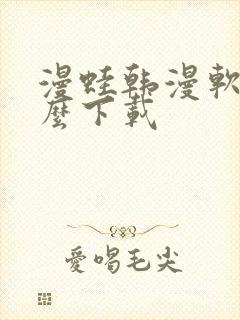 漫蛙韩漫軟
麼下載
愛喝毛尖